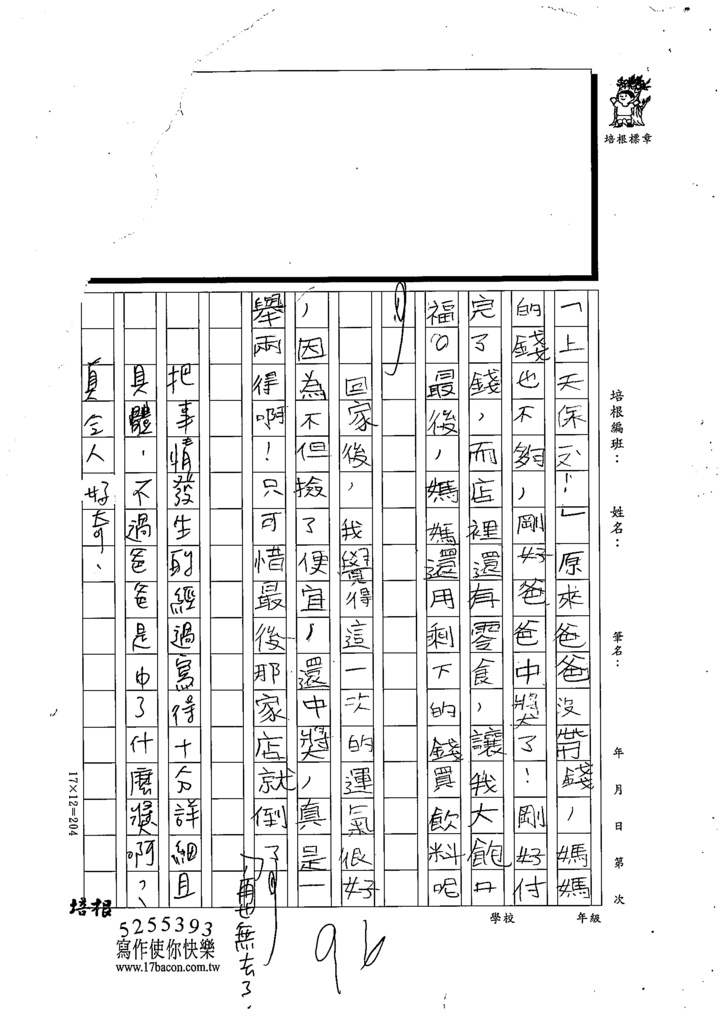 培根標章
培根編班：　姓名：　筆名：　年　月　日　第　次
學校　年級
「上天保佑！」原來爸爸沒帶錢，媽媽
的錢也不夠，剛好爸爸中獎了！剛好付
完了錢，而店裡還有零食，讓我大飽口
福。最後，媽媽還用剩下的錢買飲料呢
！
回家後，我覺得這一次的運氣很好
，因為不但撿了便宜，還中獎，真是一
舉兩得啊！只可惜最後那家店就倒了，
再也無去了。
把事情發生的經過寫得十分詳細且
具體，不過爸爸是中了什麼獎啊？、
真令人好奇、
96
17×12=204
培根
5255393
寫作使你快樂
www.17bacon.com.tw